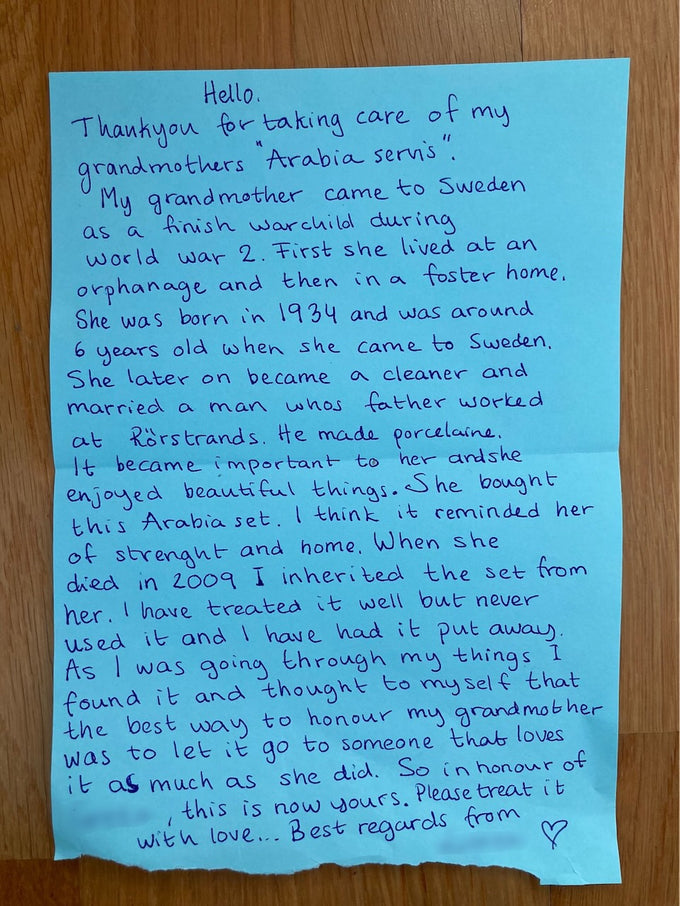 Hello.
Thankyou for taking care of my
grandmothers "Arabia servis".
My grandmother came to Sweden
as a finish warchild during
world war 2. First she lived at an
orphanage and then in a foster home.
She was born in 1934 and was around
6 years old when she came to Sweden.
She later on became a cleaner and
married a man whos father worked
at Rörstrands. He made porcelaine.
It became important to her andshe
enjoyed beautiful things. She bought
this Arabia set. I think it reminded her
of strenght and home. When she
died in 2009 I inherited the set from
her. I have treated it well but never
used it and I have had it put away.
As I was going through my things I
found it and thought to myself that
the best way to honour my grandmother
was to let it go to someone that loves
it as much as she did. So in honour of
, this is now yours. Please treat it
with love... Best regards from